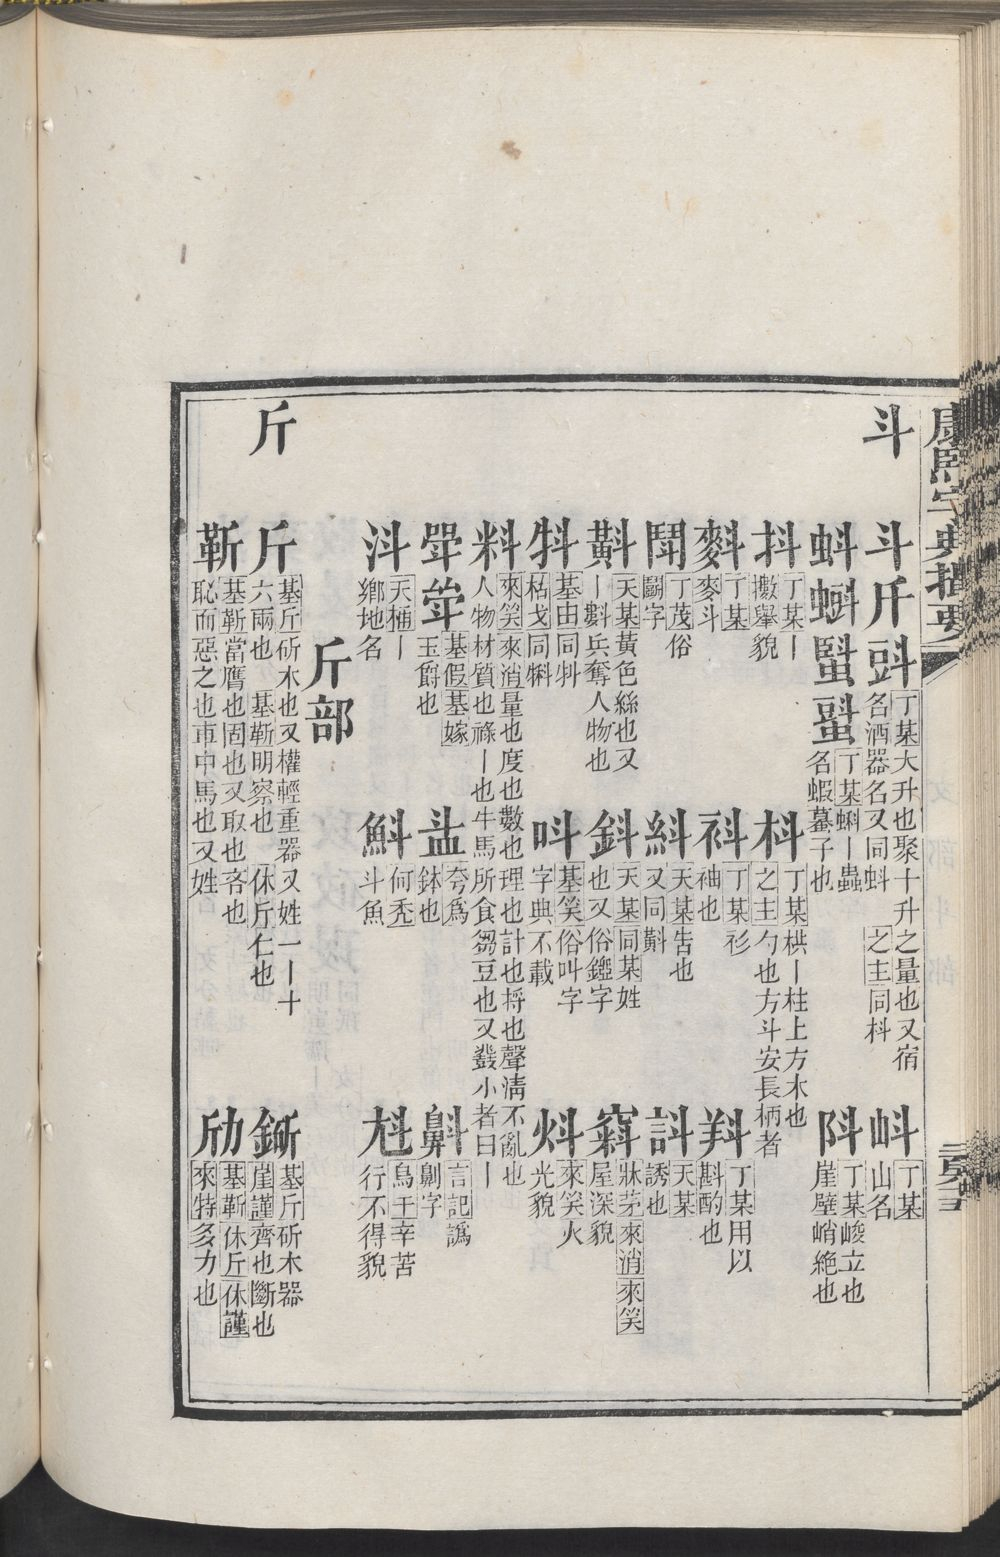 康熙字典撮要
斗
斗斤㪷 丁某大升也聚十升之量也又宿名酒器名又同蚪 之主同枓
㞳 丁某山名
蚪蝌 丁某蝌丨蟲名蝦蟇子也
阧 丁某峻立也崖壁峭絶也
抖 丁某丨擻舉貌
枓 丁某栱丨柱上方木也之主勺也方斗安長柄者
丁某麥斗
丁某衫袖也
丁某用以斟酌也
鬦 丁茂俗鬬字
紏 天某告也又同斢
䛠 天某誘也
斢 天某黃色絲也又丨䵎兵奪人物也
鈄 天某同某姓也又俗鐙字
牀茅來消來笑屋深貌
㸯 基由同㸫枯戈同犐
呌 基笑俗叫字字典不載
炓 來笑火光貌
料 來笑來消量也度也數也理也計也捋也聲淸不亂也人物材質也祿丨也牛馬所食芻豆也又發小者曰丨
斝 基假基嫁玉爵也
夸爲鉢也
言記譌劓字
㳆 天桶丨鄉地名
何秃斗魚
烏王辛苦行不得貌
斤部
斤
斤 基斤斫木也又權輕重器又姓一丨十六兩也 基靳明察也 休斤仁也
基斤斫木器崖謹齊也斷也
靳 基靳當膺也固也又取也吝也恥而惡之也車中馬也又姓
劤 基靳休斤休謹來特多力也